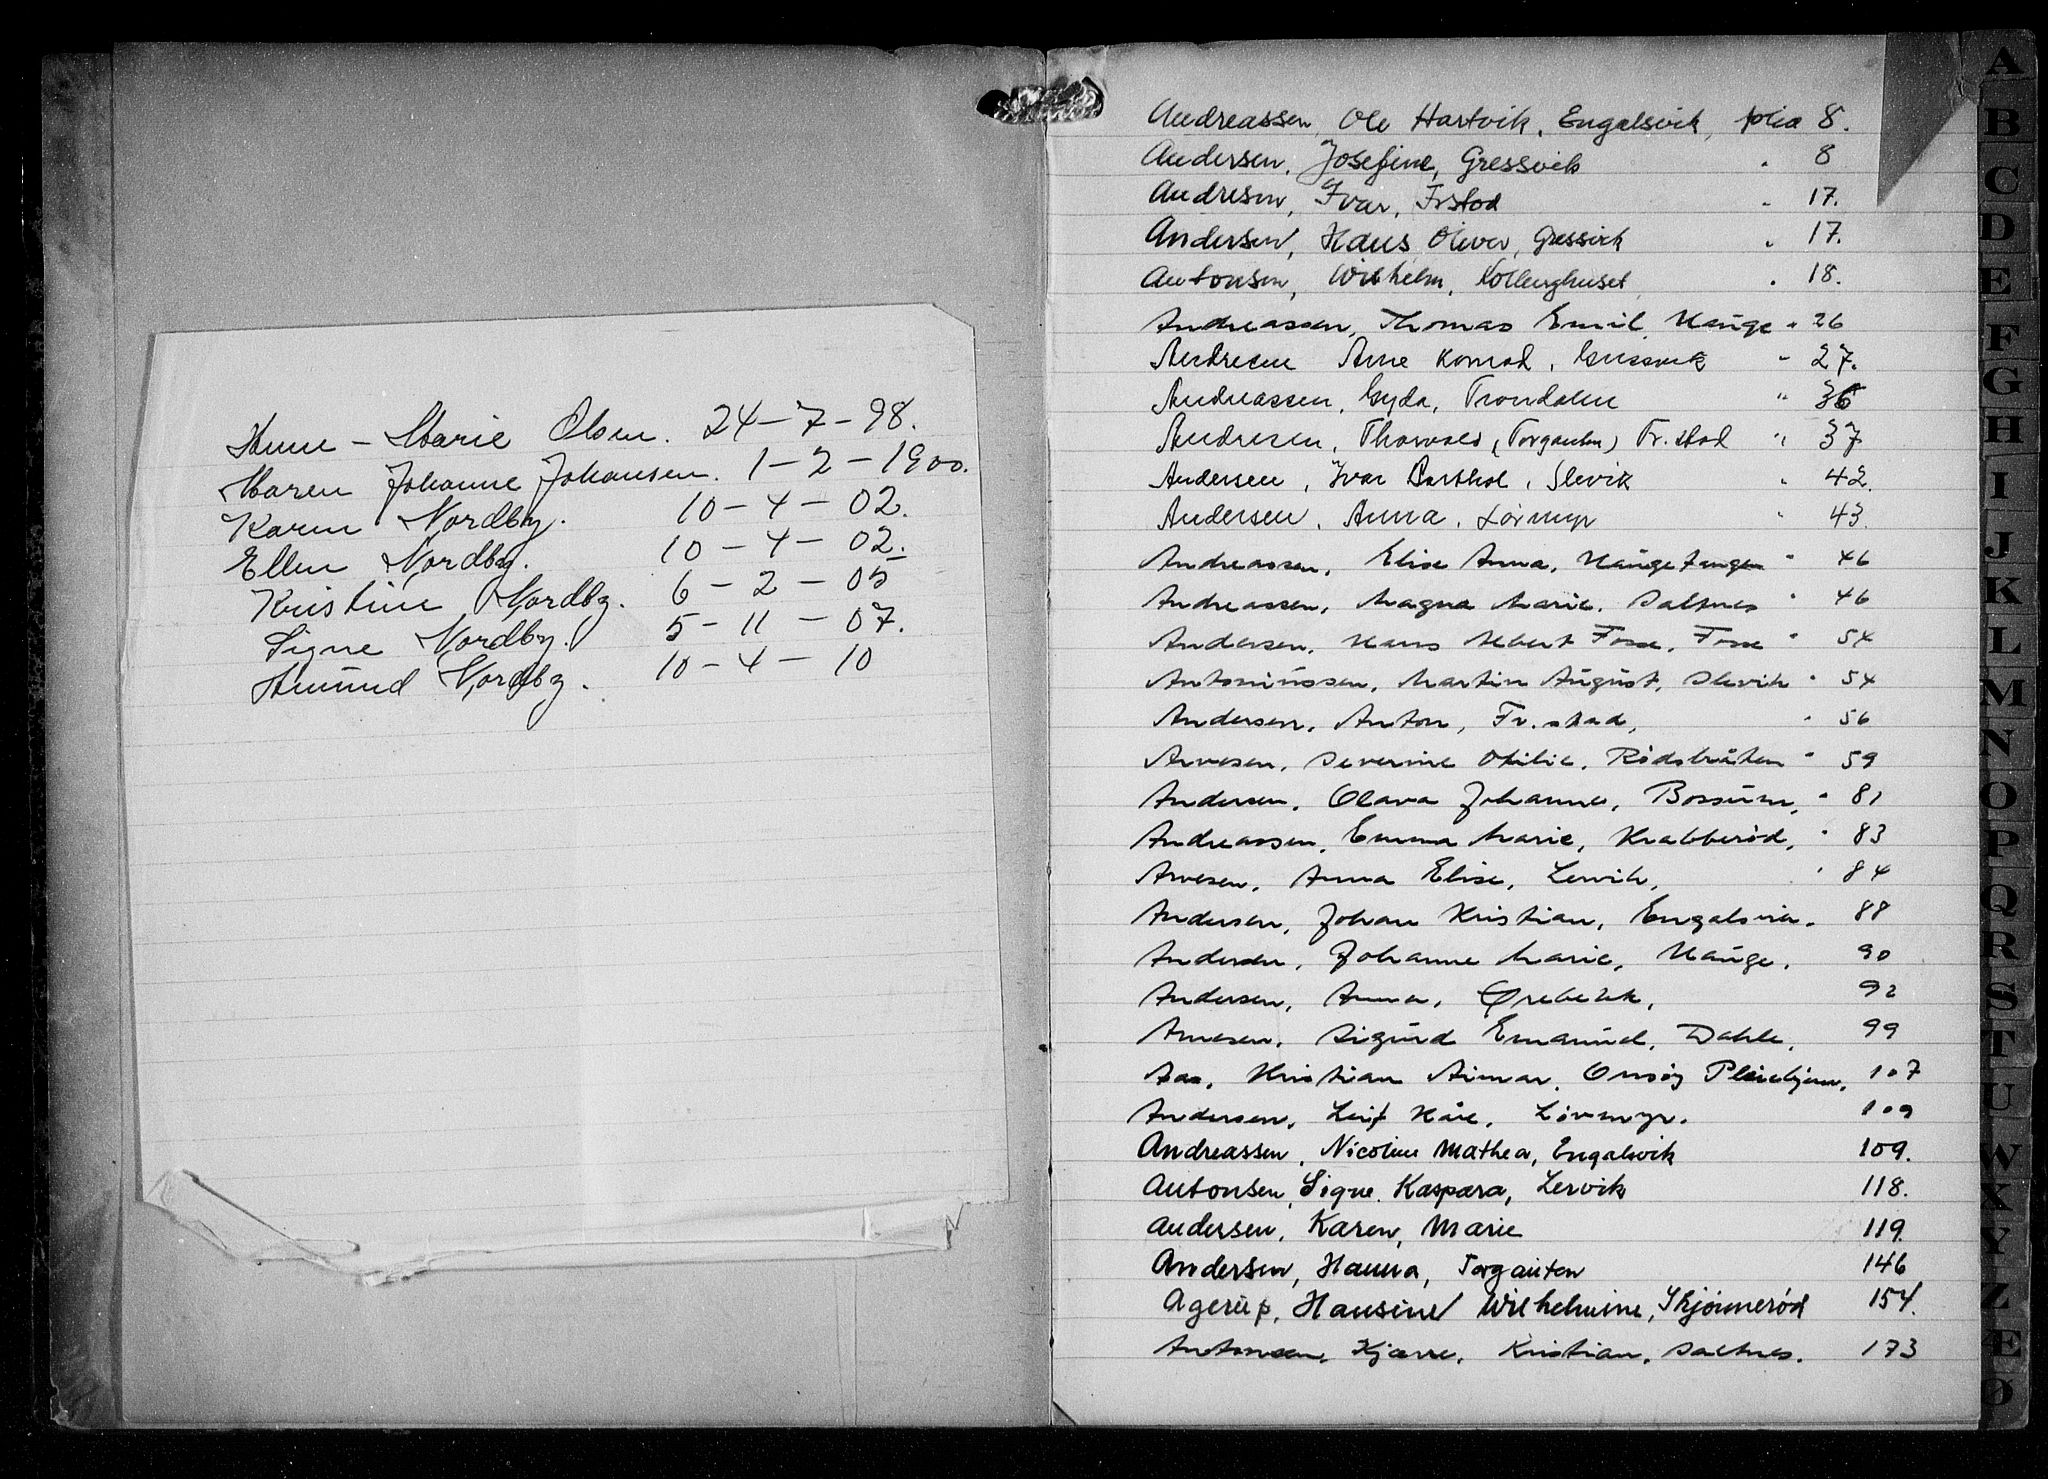 Anne - Marie Olsen. 24-7-98.
Maren Johanne Johansen. 1-2-1900.
Karen Nordby. 10-4-02.
Ellen Nordby. 10-4-02.
Kristine Nordby. 6-2-05
Signe Nordby. 5-11-07.
Amund Nordby. 10-4-10
Andreassen, Ole Hartvik, Engalsvik, folio 8.
Andersen, Josefine, Gressvik " 8
Andresen, Ivar, Frstad " 17.
Andersen, Hans Oliver, Gressvik " 17.
Antonsen, Wilhelm, Kollenghuset " 18.
Andreassen, Thomas Emil Hauge " 26
Andresen Arne Konrad, Gressvik " 27.
Andreassen, Gyda, Trondalen " 36
Andresen, Thorvald, (Torgauten) Fr.stad " 37
Andersen, Ivar Barthol, Slevik " 42.
Andersen, Anna, Lövmyr " 43.
Andreassen, Elise Anna, Haugetangen " 46
Andreassen, Magna Marie, Saltnes " 46
Andersen, Hans Albert Fosse, Fosse " 54
Antoniussen, Martin August, Slevik " 54
Andersen, Anton, Fr.stad, " 56
Arvesen, Severine Otilie, Rødsbråten " 59
Andersen, Olava Johanne, Bossum, " 81
Andreassen, Emma Marie, Krabberød, " 83
Arvesen, Anna Elise, Lervik, " 84
Andersen, Johan Kristian, Engalsvik. 88
Andersen, Johanne Marie, Hauge. 90
Andersen, Anna, Ørebekk, 92
Arnesen, Sigurd Emanuel, Dahle, 99
Aas, Kristian Aimar, Onsøy Pleiehjem, 107
Andersen, Leif Kåre, Lövmyr. 109
Andreassen, Nicoline Mathea, Engalsvik 109.
Antonsen, Signe Kaspara, Lervik 118.
Andersen, Karen, Marie 119.
Andersen, Hanna, Torgauten 146
Agerup, Hansine Wilhelmine, Skjönnerød 154.
Antonsen, Hjarre, Kristian, Saltnes. 173
A
B
C
D
E
F
G
H
I
J
K
L
M
N
O
P
Q
R
S
T
U
W
X
Y
Z
Æ
Ø